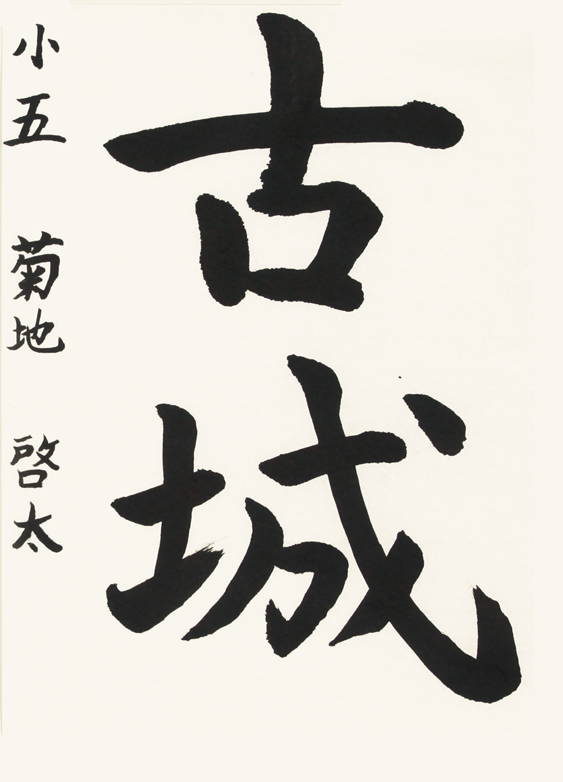 古城
小五 菊地 啓太